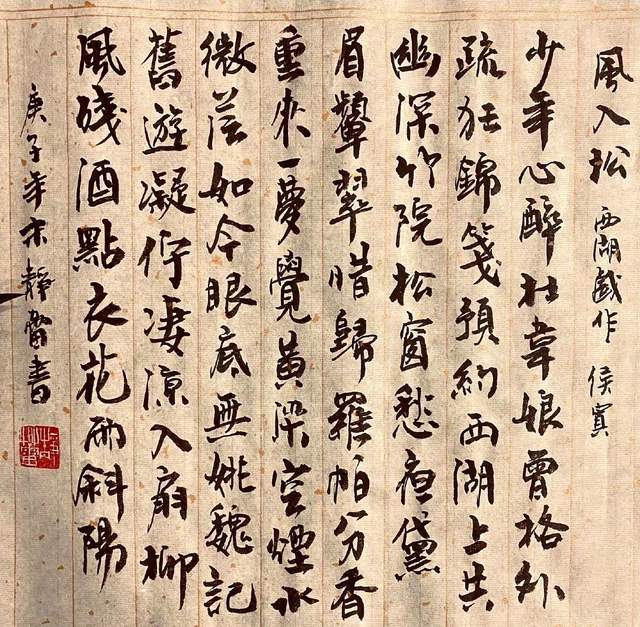 風入松 西湖戲作 侯寘
少年心醉杜韋娘曾格外
疏狂錦箋預約西湖上共
幽深竹院松窗愁夜黛
眉顰翠惜歸羅帕分香
重來一夢覺黃粱空煙水
微茫如今眼底無姚魏記
舊遊凝佇凄涼入扇柳
風殘酒點衣花雨斜陽
庚子年末靜蕾書